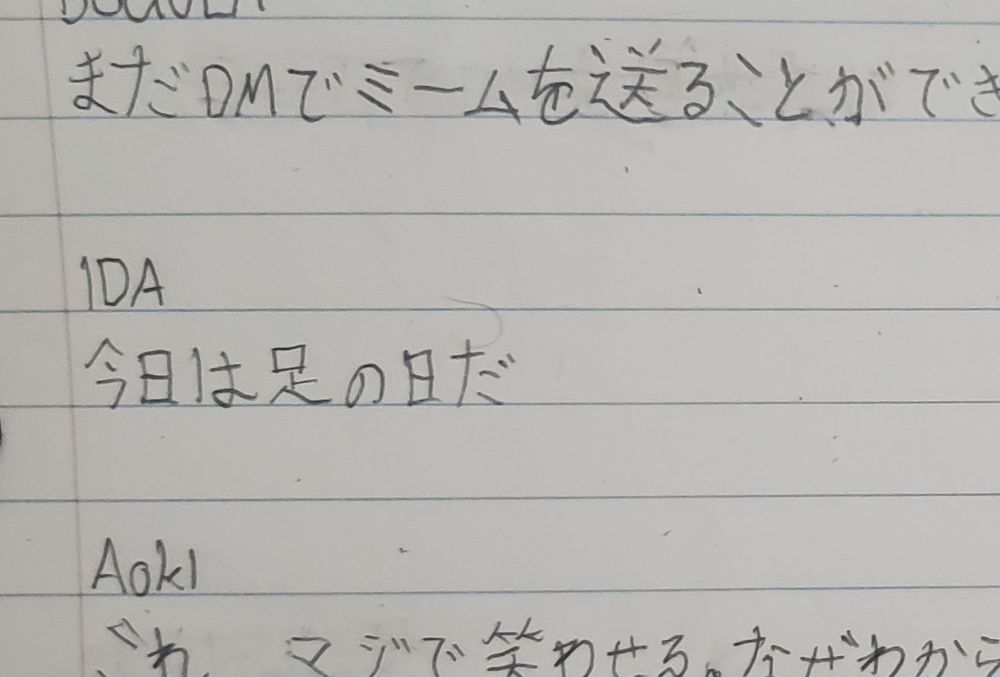 まだDMでミームを送ることができ
IDA
今日は足の日だ
Aoki
マジで笑わせる。なぜわから